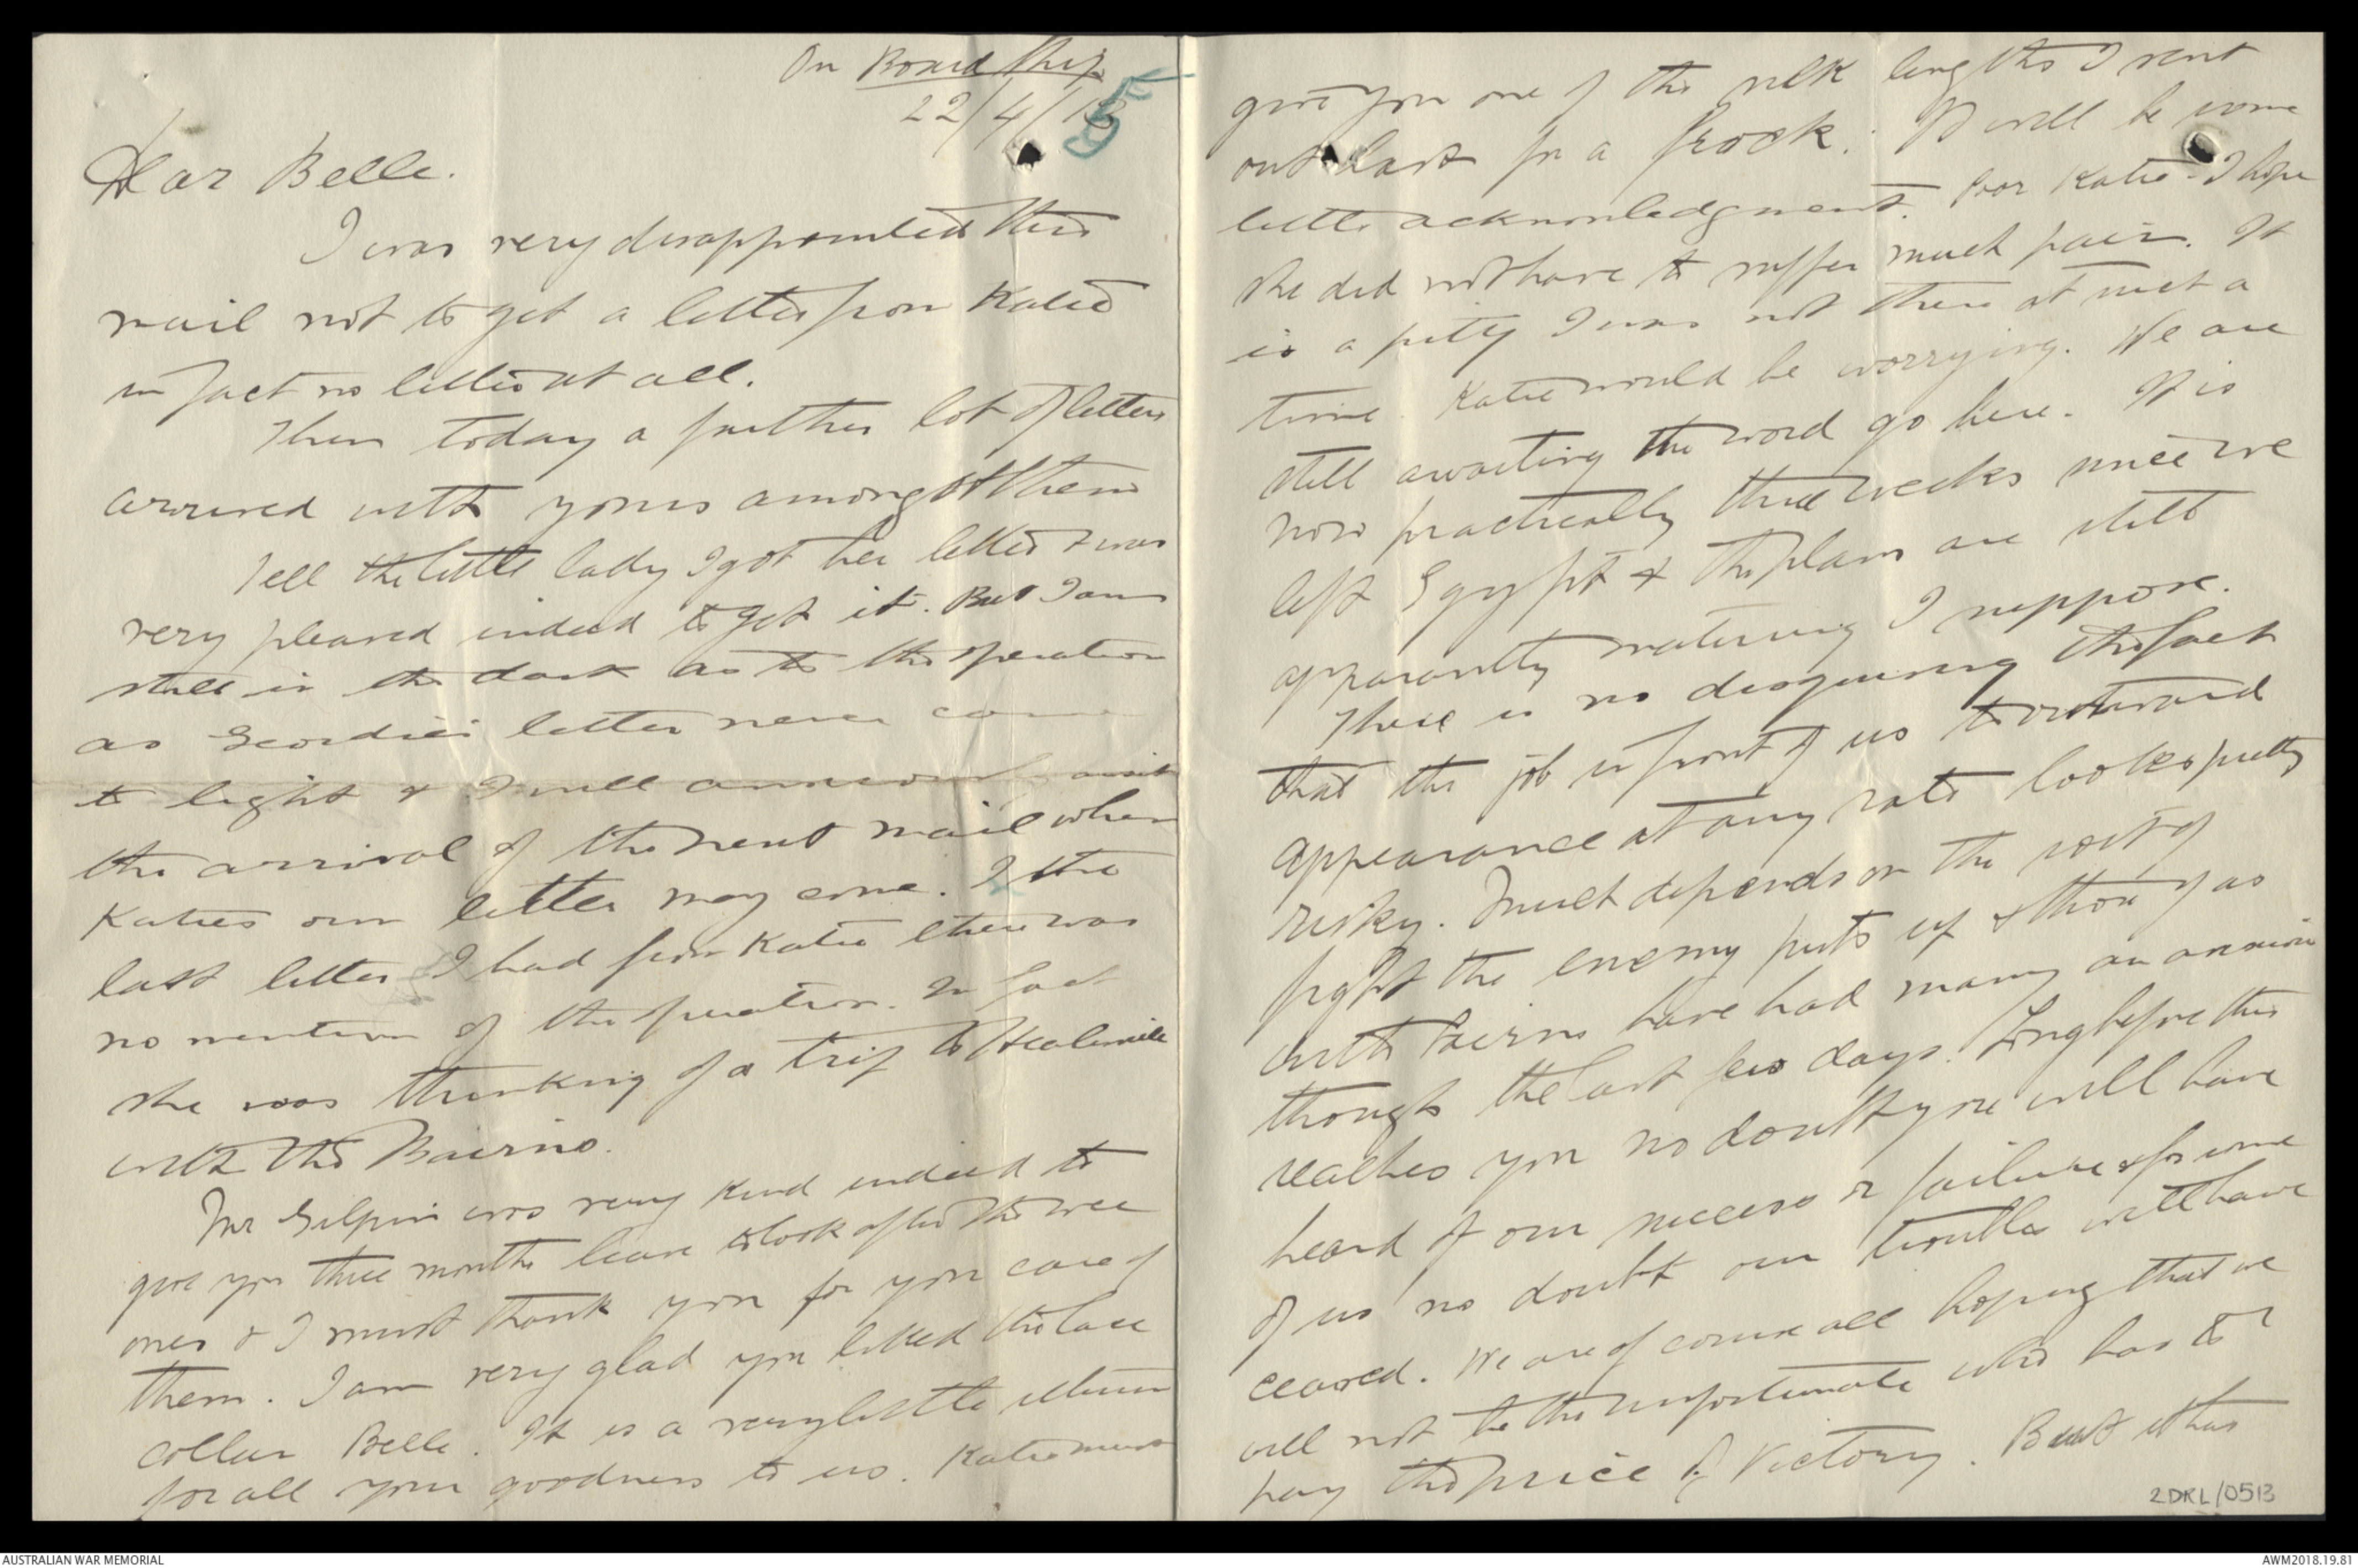 On Board Ship
22/4/15
Dear Belle.
I was very disappointed this
mail not to get a letter from Katie
in fact no letters at all.
Then today a further lot of letters
arrived with yours amongst them
Tell the little lady I got her letter & was
very pleased indeed to get it. But I am
still in the dark as to the operation
as Geordie's letter never came
to light & I will await
the arrival of the next mail when
Katies own letter may come. In the
last letter I had from Katie there was
no mention of the operation. In fact
she was thinking of a trip to Healesville
with the Bairns.
Mr Gilpin was very kind indeed to
give you three months leave to look after the wee
ones & I must thank you for your care of
them. I am very glad you liked the lace
collar Belle. It is a very little return
for all your goodness to us. Katie must
give you one of the silk lengths I sent
out last for a frock. It will be some
little acknowledgment. Poor Katie. I hope
she did not have to suffer much pain. It
is a pity I was not there at such a
time. Katie would be worrying. We are
still awaiting the word go here. It is
now practically three weeks since we
left Egypt & the plans are still
apparently maturing I suppose.
There is no disguising the fact
that the job in front of us to outward
appearance at any rate looks pretty
risky. Much depends on the sort of
fight the enemy puts up & those of us
with Bairns have had many an anxious
though the last few days. Long before this
reaches you no doubt you will have
heard of our success or failure & for some
of us no doubt our troubles will have
ceased. We are of course all hoping that we
will not be the unfortunate who has to
pay the price of Victory. But it has
2DRL/0513
AUSTRALIAN WAR MEMORIAL
AWM2018.19.81